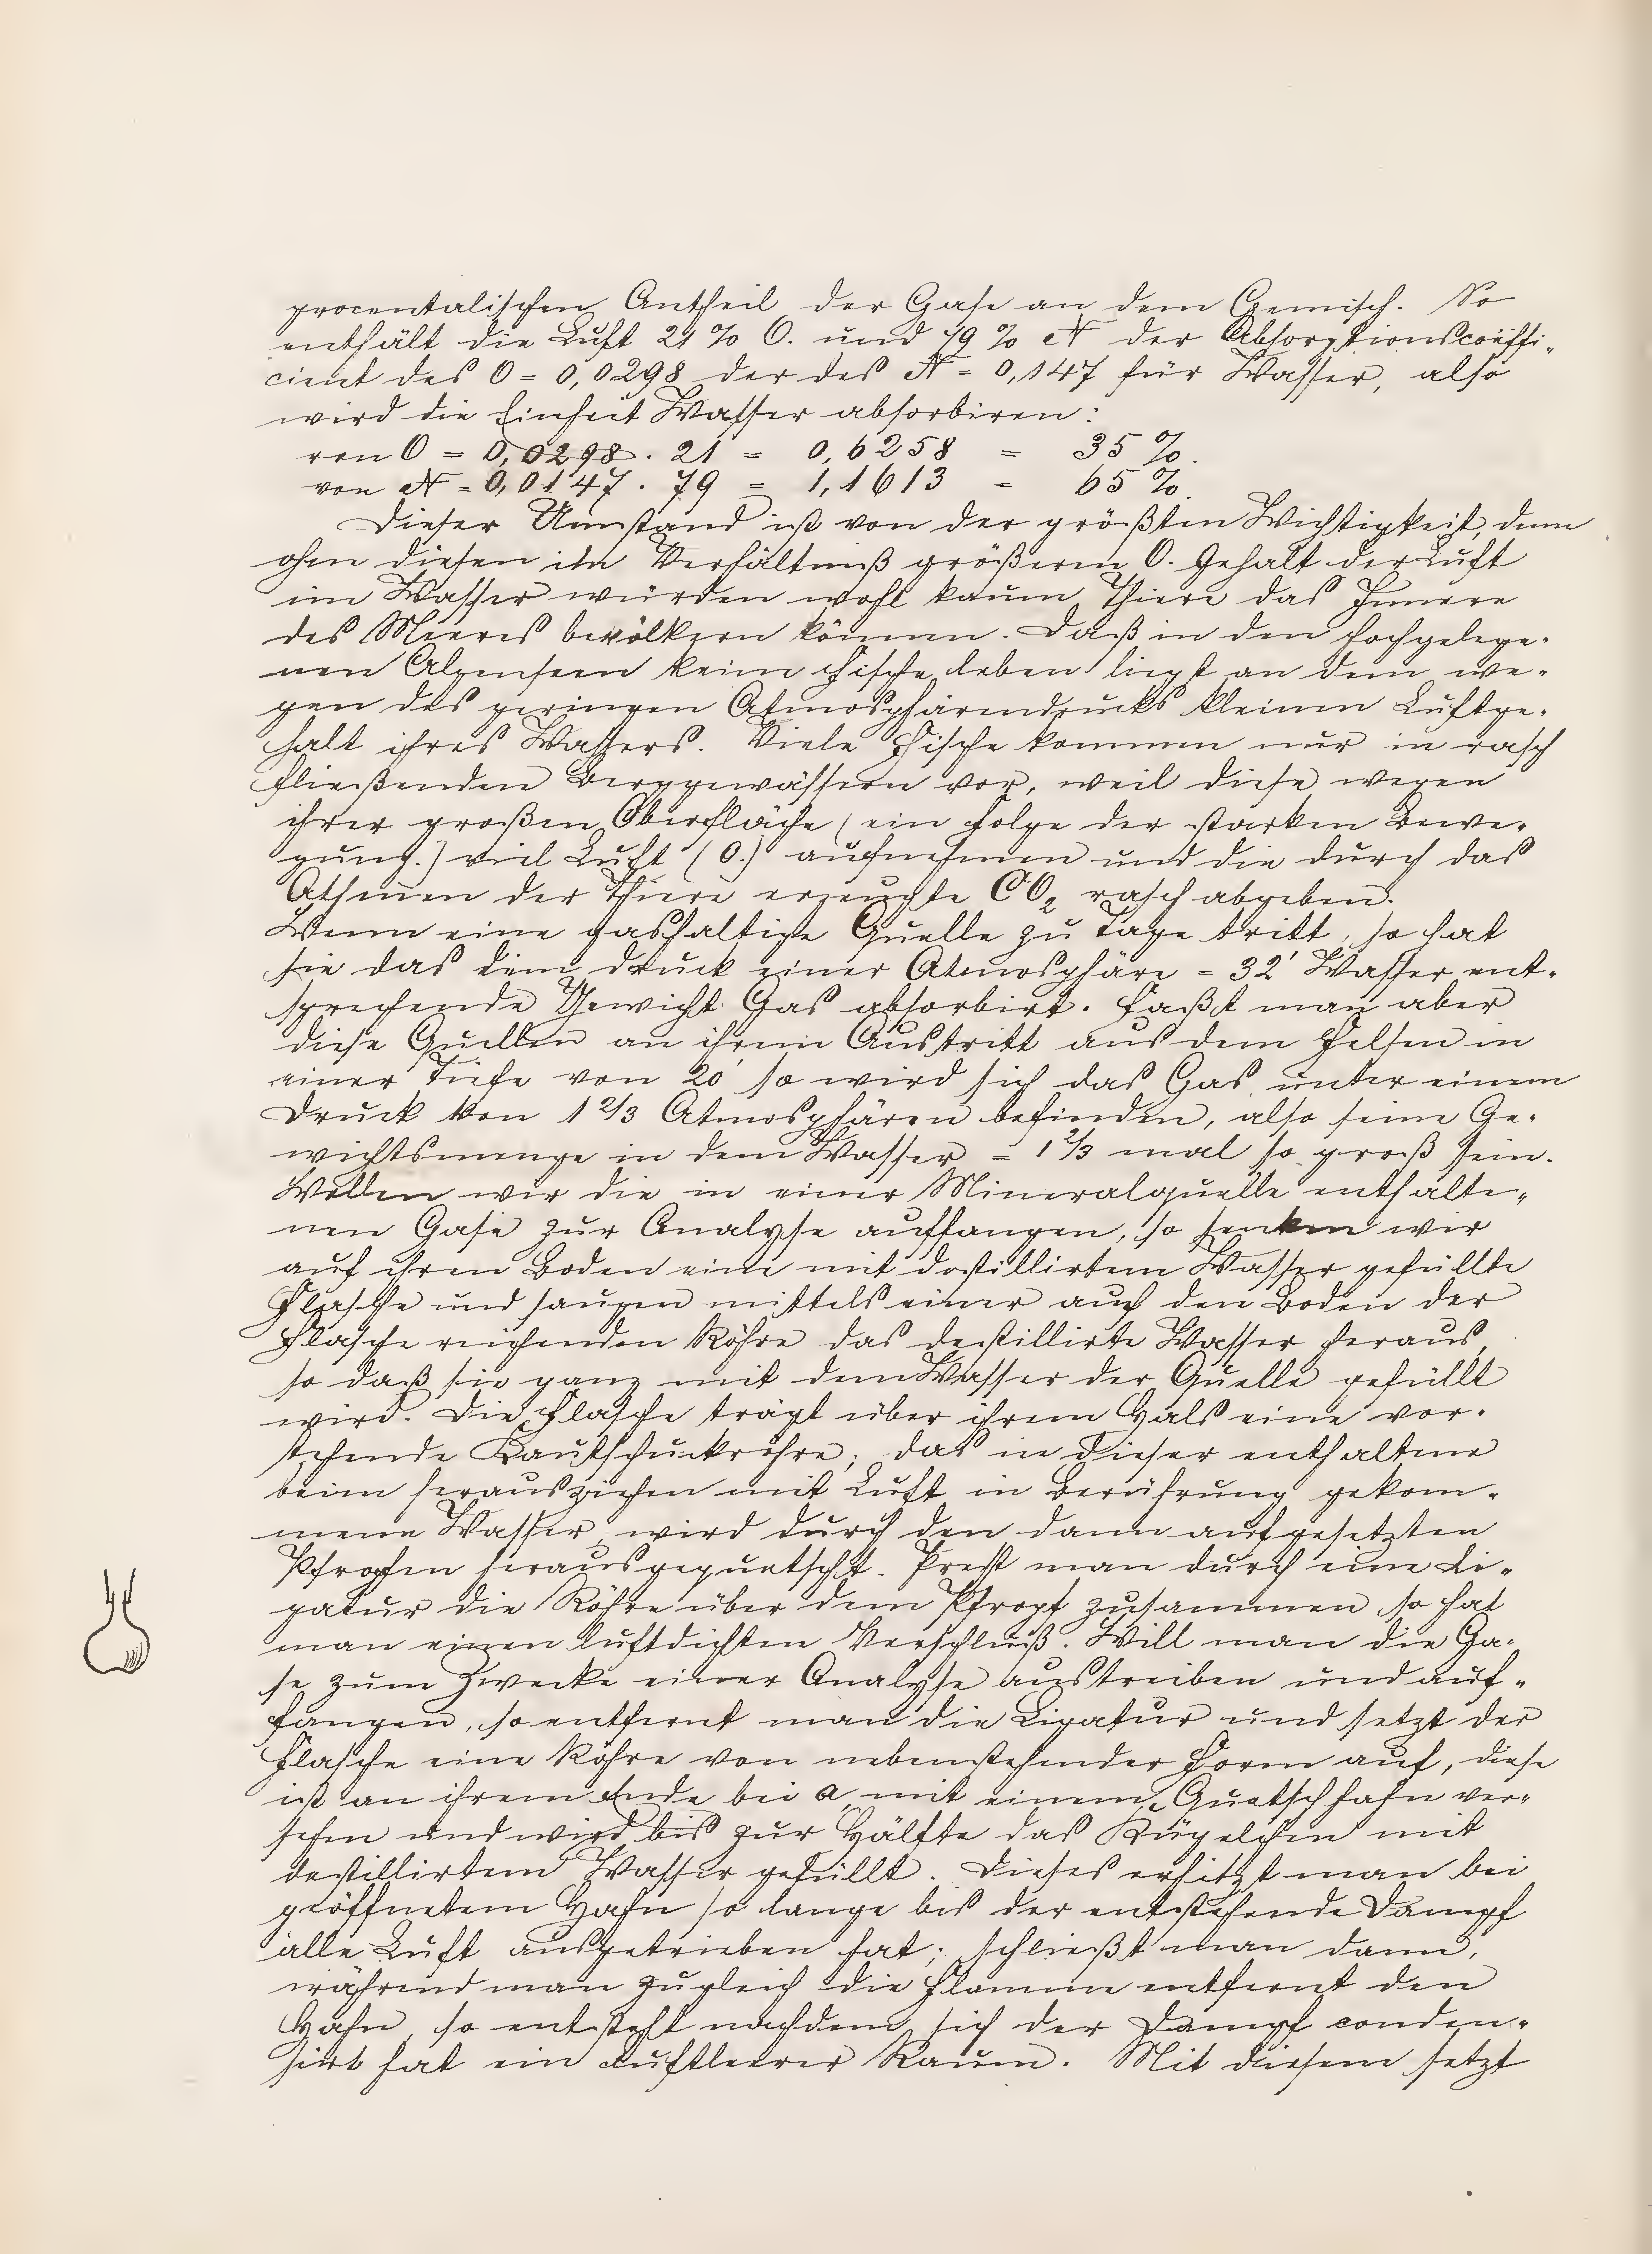 procentalischen Antheil der Gase an dem Gemisch. So
enthält die Luft 21 % O. und 79 % N der Absorptionscoëffi-
cient des O = 0,0298 der des N = 0,147 für Wasser, also
wird die Einheit Wasser absorbiren:
von O = 0,0298 . 21 = 0,6258 = 35 %.
von N = 0,0147 . 79 = 1,1613 = 65 %.
Dieser Umstand ist von der größten Wichtigkeit, denn
ohne diesen im Verhältniß größeren O. Gehalt der Luft
im Wasser würden wohl kaum Thiere das Innere
des Meeres bevölkern können. Daß in den hochgelege-
nen Alpenseen keine Fische leben liegt an dem we-
gen des geringen Atmosphärendrucks kleinen Luftge-
halt ihres Wassers. Viele Fische kommen nur in rasch
fließenden Berggewässern vor, weil diese wegen
ihrer großen Oberfläche (ein Folge der starken Bewe-
gung.) viel Luft (O.) aufnehmen und die durch das
Athmen der Thiere erzeugte CO2 rasch abgeben.
Wenn eine gashaltige Quelle zu Tage tritt, so hat
sie das dem Druck einer Atmosphäre = 32' Wasser ent-
sprechende Gewicht Gas absorbirt. Faßt man aber
diese Quellen an ihrem Austritt aus dem Felsen in
einer Tiefe von 20' so wird sich das Gas unter einem
Druck von 1 2/3 Atmosphären befinden, also seine Ge-
wichtsmenge in dem Wasser = 1 2/3 mal so groß sein.
Wollen wir die in einer Mineralquelle enthalte-
nen Gase zur Analyse auffangen, so senken wir
auf ihren Boden eine mit destillirtem Wasser gefüllte
Flasche und saugen mittels einer auf den Boden der
Flasche reichenden Röhre das destillirte Wasser heraus,
so daß sie ganz mit dem Wasser der Quelle gefüllt
wird. Die Flasche trägt über ihrem Hals eine vor-
stehende Kautschuckröhre; das in dieser enthaltene
beim herausziehen mit Luft in Berührung gekom-
mene Wasser, wird durch den dann aufgesetzten
Pfropfen herausgequetscht. Preßt man durch eine Li-
gatur die Röhre über dem Pfropf zusammen so hat
man einen luftdichten Verschluß. Will man die Ga-
se zum Zwecke einer Analyse austreiben und auf-
fangen, so entfernt man die Ligatur und setzt der
Flasche eine Röhre von nebenstehender Form auf, diese
ist an ihrem Ende bei a, mit einem Quetschhahn ver-
sehen und wird bis zur Hälfte das Kügelchen mit
destillirtem Wasser gefüllt. Dieses erhitzt man bei
geöffnetem Hahn so lange bis der entstehende Dampf
alle Luft ausgetrieben hat; schließt man dann,
während man zugleich die Flamme entfernt den
Hahn, so entsteht nachdem sich der Dampf conden-
sirt hat ein luftleerer Raum. Mit diesem setzt